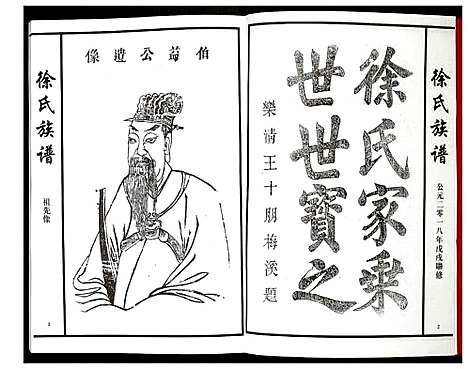 徐氏族谱
公元二零一八年戊戌联修
2
徐氏家乘
世世寳之
樂清王十朋梅溪題
伯益公遺像
徐氏族谱
祖先像
3